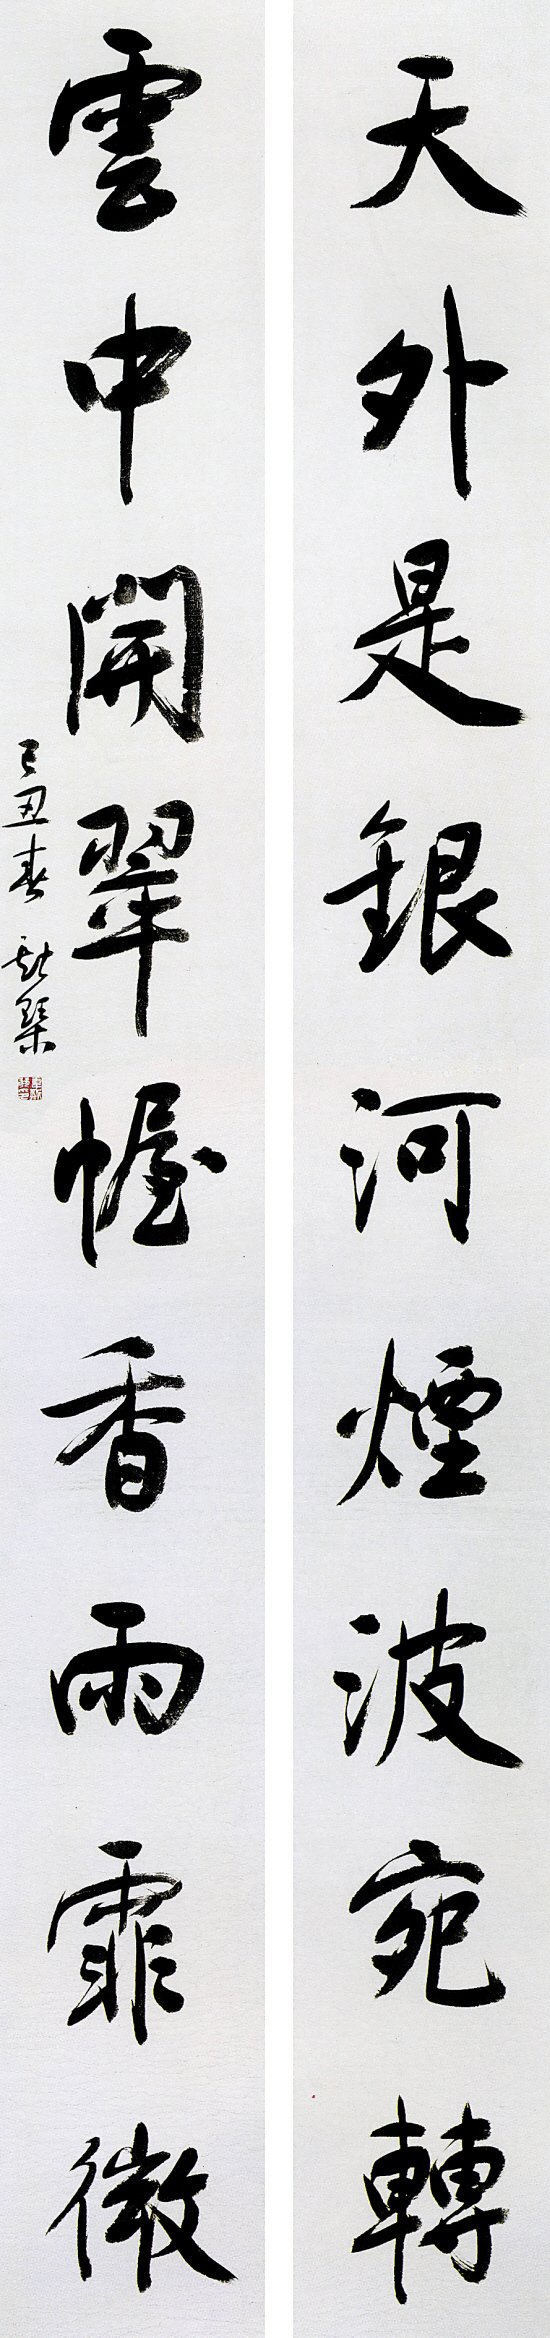 天外是銀河煙波宛轉
雲中開翠幄香雨霏微
己丑春